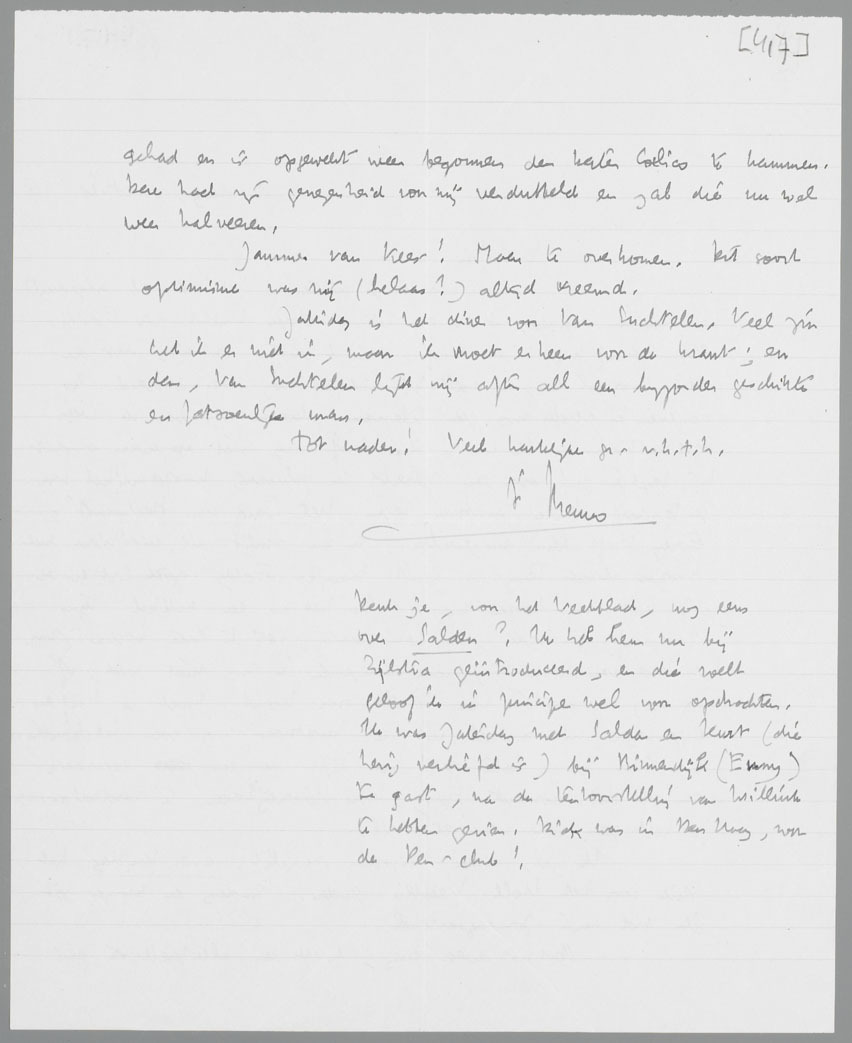 [417]
gehad en is opgewekt weer begonnen den kater Calico te kammen.
Deze had zijn genegenheid voor mij verdubbeld en zal die nu wel
weer halveeren.
Jammer van Kees! Maar te overkomen. Dit soort
optimisme was mij (helaas?) altijd vreemd.
Zaterdag is het diner voor Van Suchtelen. Veel zin
heb ik er niet in, maar ik moet erheen voor de krant; en
dan, Van Suchtelen lijkt mij after all een bijzonder geschikte
en fatsoenlijke man.
Tot nader! Veel hartelijke gr. v.h.t.h.
je Menno
Denk je, voor het Weekblad, nog eens
over Salden? Ik heb hem nu bij
Zijlstra geïntroduceerd, en die voelt
geloof ik in principe wel voor opdrachten.
Ik was Zaterdag met Salden en (die
hevig verliefd is) bij Binnendijk (Emmy)
te gast, na de tentoonstelling van Willink
te hebben gezien. Dick was in Den Haag, voor
de Pen-club!